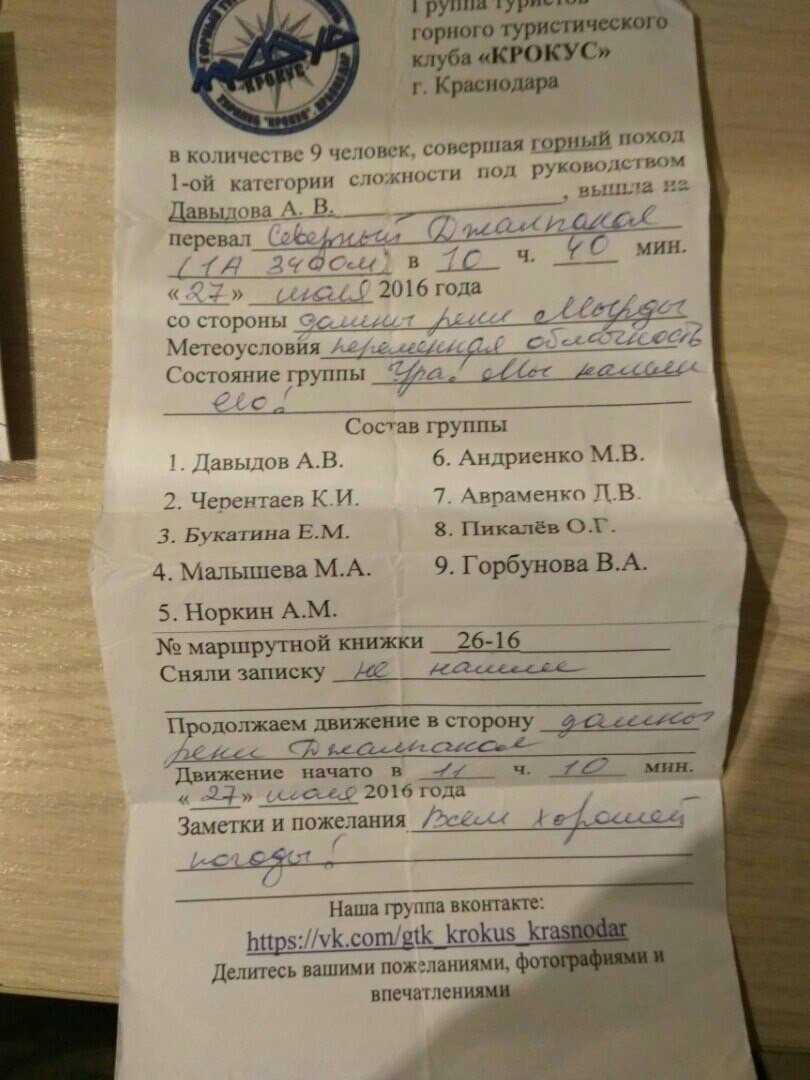 ГОРНЫЙ
КРОКУС
ТУРКЛУБ "КРОКУС", КРАСНОДАР
Группа туристов
горного туристического
клуба «КРОКУС»
г. Краснодара
в количестве 9 человек, совершая горный поход
1-ой категории сложности под руководством
Давыдова А. В., вышла на
перевал Северный Джалпакол
(1А 3400м) в 10 ч. 40 мин.
«27» июля 2016 года
со стороны долины реки Мырды
Метеоусловия переменная облачность
Состояние группы Ура! Мы нашли
его!
Состав группы
1. Давыдов А.В. 6. Андриенко М.В.
2. Черентаев К.И. 7. Авраменко Д.В.
3. Букатина Е.М. 8. Пикалёв О.Г.
4. Малышева М.А. 9. Горбунова В.А.
5. Норкин А.М.
№ маршрутной книжки 26-16
Сняли записку не нашли
Продолжаем движение в сторону долины
реки Джалпакол
Движение начато в 11 ч. 10 мин.
«27» июля 2016 года
Заметки и пожелания Всем хорошей
погоды!
Наша группа вконтакте:
https://vk.com/gtk_krokus_krasnodar
Делитесь вашими пожеланиями, фотографиями и
впечатлениями